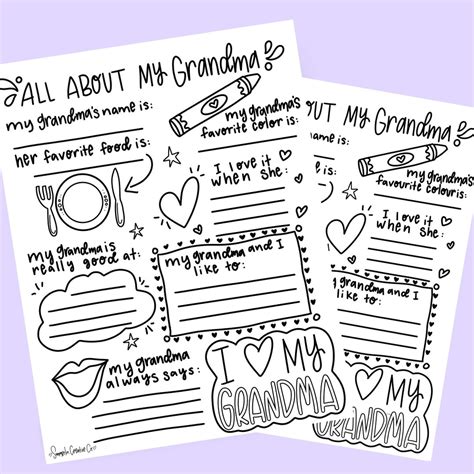 ALL ABOUT MY Grandma
my grandma's name is:
my grandma's
favorite color is:
her favorite food is:
I love it
when she:
my grandma is
really good at:
my grandma and I
like to:
my grandma
always says:
I MY
GRANDMA
ABOUT MY Grandma
my grandma's
favourite colour is:
I love it
when she:
my grandma and I
like to:
I MY
GRANDMA